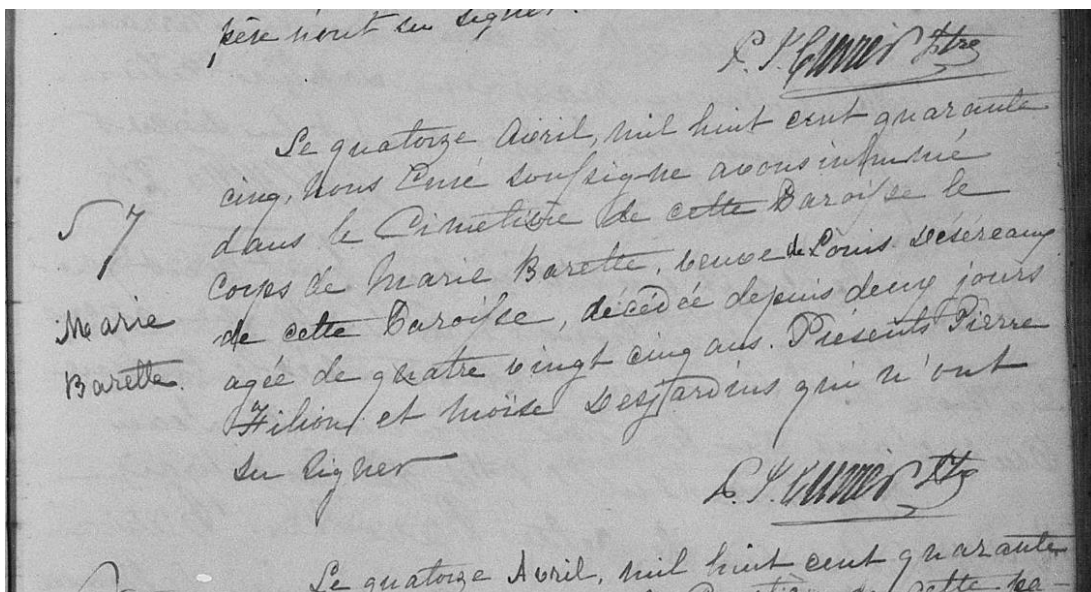 père n'ont su signer.
L. J. Ptre
Le quatorze Avril, mil huit cent quarante
cinq, nous Curé soussigné avons inhumé
dans le Cimetière de cette Paroisse le
Corps de Marie Barette, veuve de Louis Désereaux
de cette Paroisse, décédée depuis deux jours
agée de quatre vingt cinq ans. Présents Pierre
Filion et Moïse Desjardins qui n'ont
su signer
57
Marie
Barette.
L. J. Ptre
Le quatorze Avril, mil huit cent quarante
cette pa-